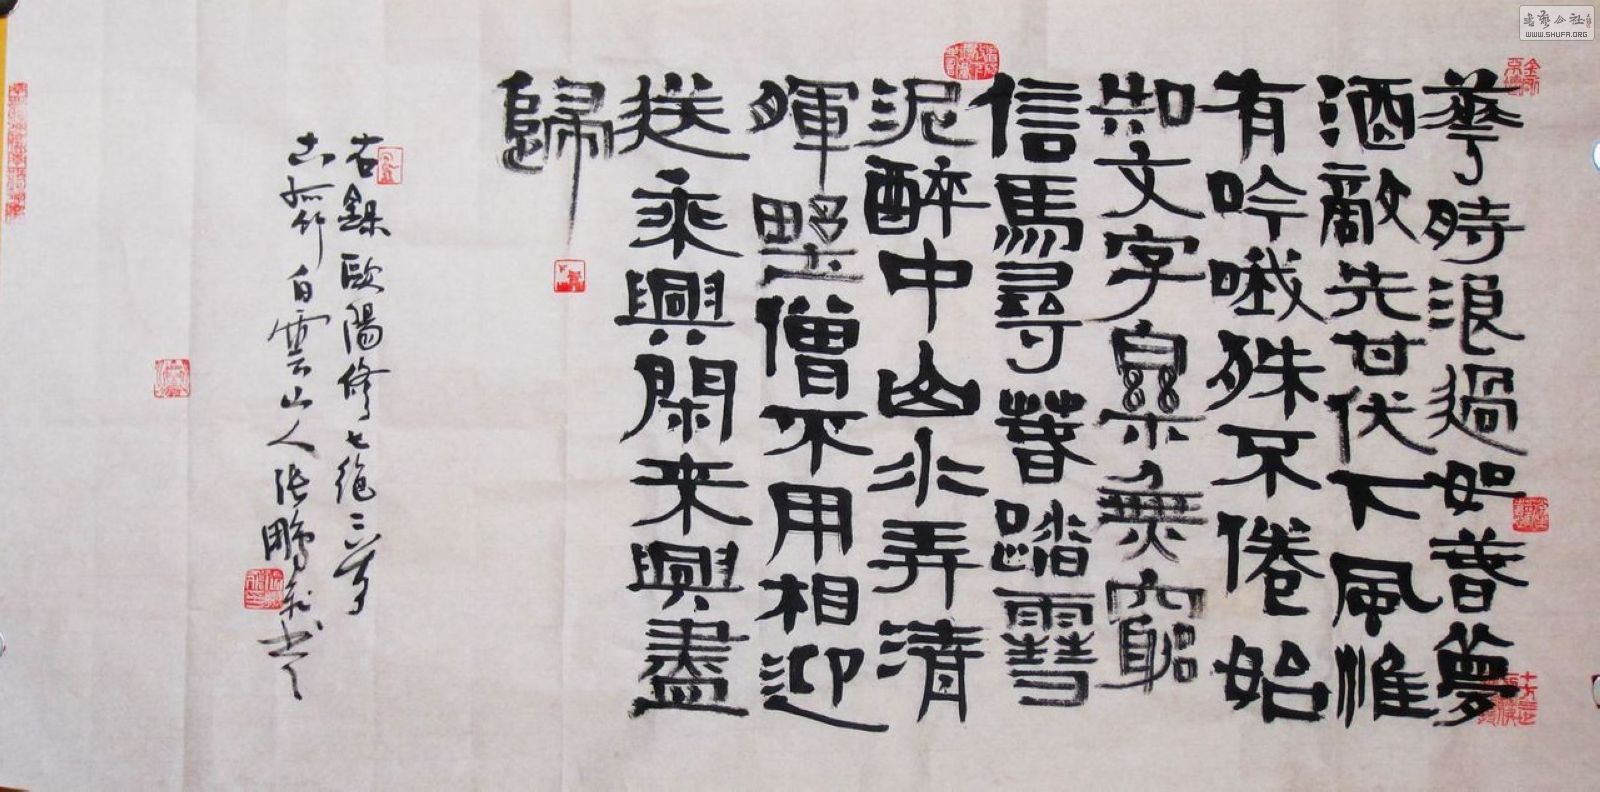 華時浪過如春夢
酒敵先甘伏下風惟
有吟哦殊不倦始
知文字樂無窮
信馬尋春踏雪
泥醉中山水弄清
暉野僧不用相迎
送乘興閑來興盡
歸
右錄歐陽修七絕二首
古孤竹白雲山人張鵬書
書藝公社
WWW.SHUFA.ORG